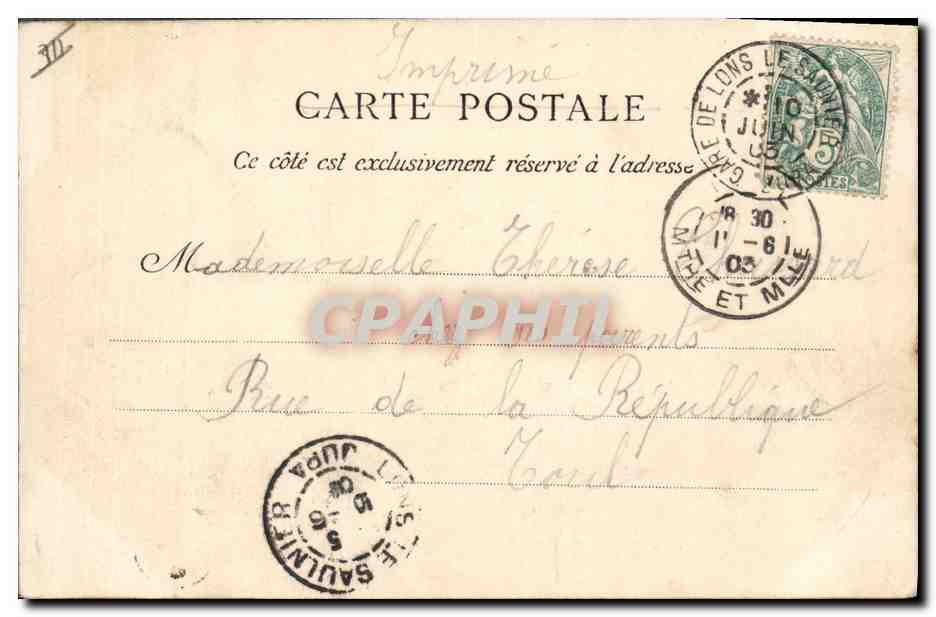 III
Imprimé
CARTE POSTALE
Ce côté est exclusivement réservé à l'adresse
Mademoiselle Thérèse
parents
Rue de la République
Toul
CPAPHIL
GARE DE LONS LE SAUNIER JURA
10
JUIN
03
5
POSTES
18 30
11 - 6
03
MTHE ET MLLE
LONS-LE-SAULNIER JURA
5
6
03